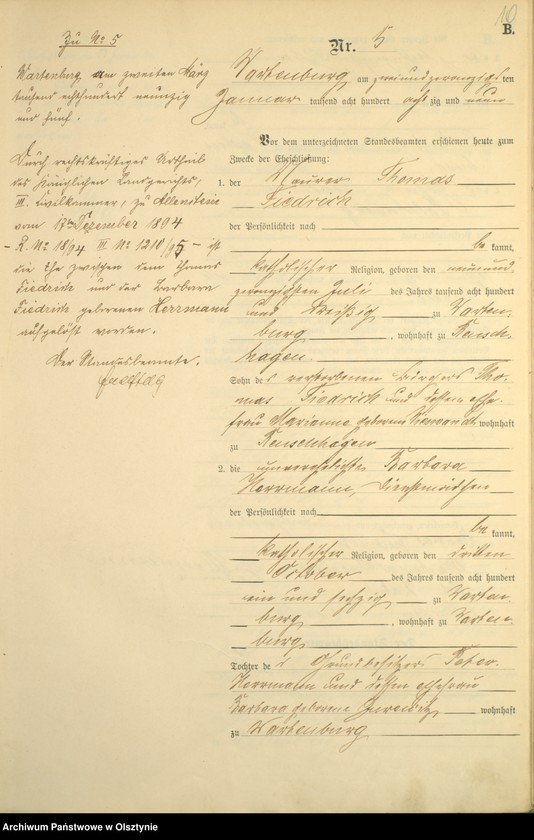 10
B.
Zu No 5
Nr. 5
Wartenburg am zweiten März
tausend achthundert neunzig
und fünf.
Durch rechtskräftiges Urtheil
des Königlichen Landgerichts,
III. Civilkammer, zu Allenstein
vom 17ten Dezember 1894
- R. No 18/94 III No 1210/95 - ist
die Ehe zwischen dem Thomas
Fiedrich und der Barbara
Fiedrich geborenen Herrmann
aufgelöst worden.
Der Standesbeamte.
Wartenburg am zweiundzwanzigsten
Januar tausend acht hundert achtzig und neun
Vor dem unterzeichneten Standesbeamten erschienen heute zum
Zwecke der Eheschließung:
1. der Maurer Thomas
Fiedrich
der Persönlichkeit nach
bekannt,
katholischer Religion, geboren den neunund
zwanzigsten Juli des Jahres tausend acht hundert
und dreißig zu Warten
burg, wohnhaft zu Reusch
hagen.
Sohn des verstorbenen Bürgers Tho
mas Fiedrich und dessen Ehe
frau Marianna geborene wohnhaft
zu Reuschhagen
2. die unverehelichte Barbara
Herrmann, Dienstmädchen
der Persönlichkeit nach
bekannt,
katholischer Religion, geboren den dritten
October des Jahres tausend acht hundert
ein und sechzig zu Warten
burg, wohnhaft zu Warten
burg
Tochter des Grundbesitzers Peter
Herrmann und dessen Ehefrau
Barbara geborene wohnhaft
zu Wartenburg
Archiwum Państwowe w Olsztynie